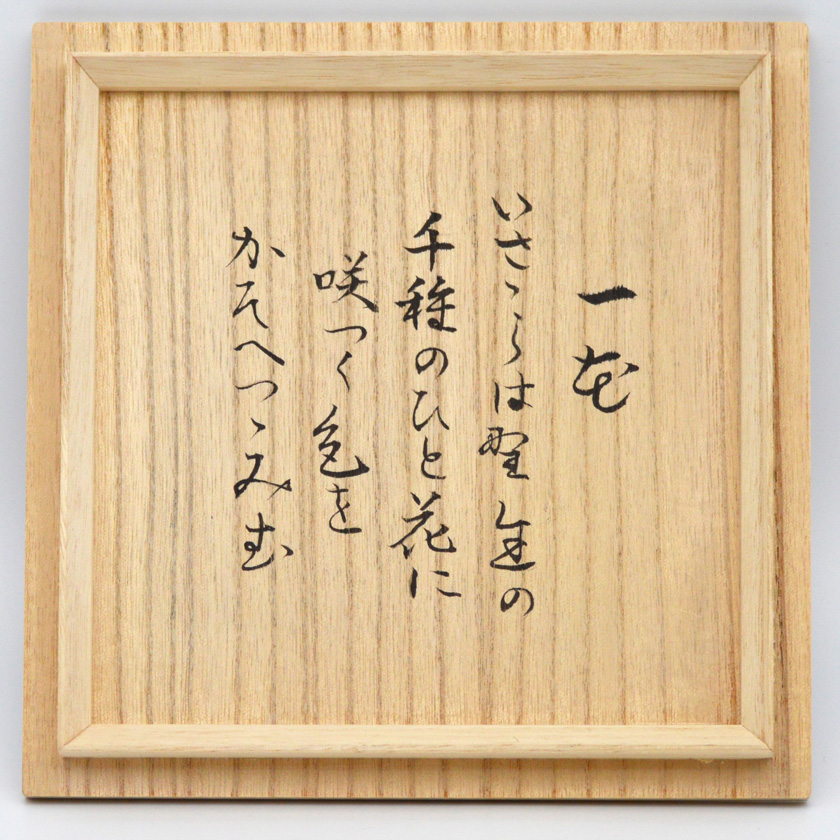 一花
いさゝらは野邊の
千種のひと花に
咲つく色を
かそへつゝみむ